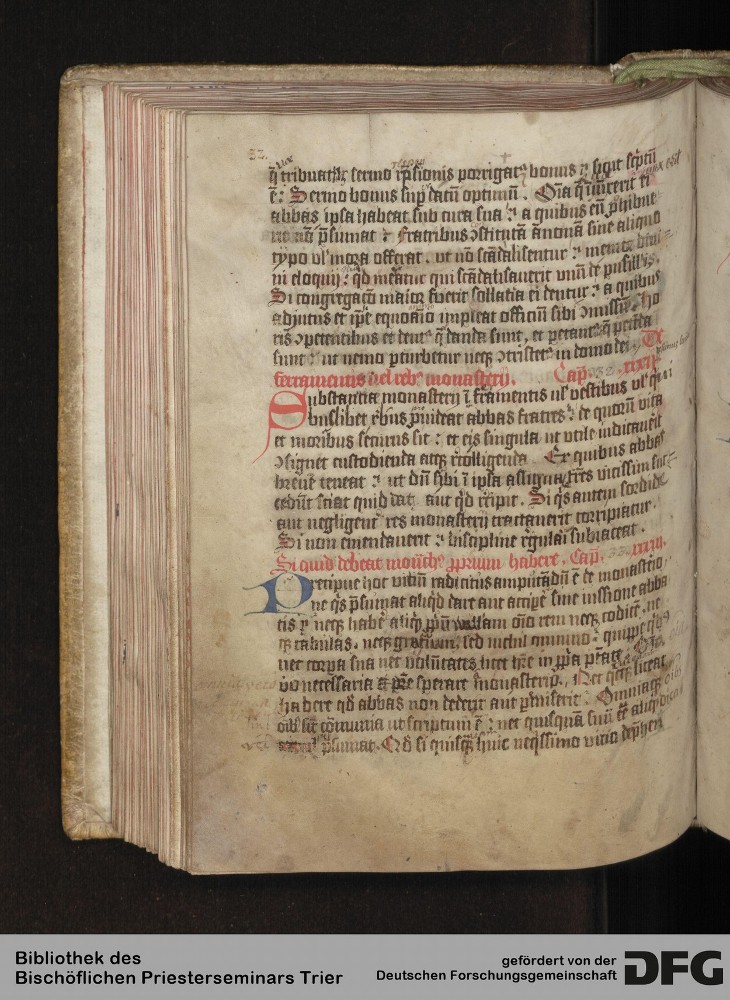 32.
q̄ tribuatur sermo rn̄sionis porrigatᷣ bonus ꝛ sicut sc̄ptū
ē: Sermo bonus sup̄ datū optimū. Oīa q̄ iniūxerit ei
abbas ipsa habeat sub cura sua ꝛ a quibus eū ꝓhibue
rit nō p̄sumat ꝛ Fratribus ꝯstitutā ānonā sine aliquo
typo vl' mora offerat. ut nō scādalisentur ꝛ memor diui
ni eloquij ꝛ qd mereatur qui scādalisauerit vnū de pusillis.
Si congregatō maior fuerit sollatia ei dentur ꝛ a quibus
adiutus et ip̄e equo aīo impleat officiū sibi ꝯmissū. Ho
ris ꝯpetentibus et dentᷣ q̄ danda sunt, et petantᷣ q̄ petēda
sunt ꝛ ut nemo ꝑturbetur neqꝫ ꝯtristetᷣ in domo dei. De
ferramentis vel rebꝰ monasterij. Cap. 32. xxxij.
Substantia monasterij ī ferramentis ul' vestibus ul' qui
buslibet rebus p̄uideat abbas fratres ꝛ de quorū vita
et moribus securus sit ꝛ et eis singula ut vtile iudicauerit
ꝯsignet custodienda atqꝫ recolligenda. Ex quibus abbas
breue teneat ꝛ ut dū sibi ī ipsa assignata fr̄es vicissim suc
cedūt sciat quid dat aut qd recipit. Si q̄s autem sordide
aut negligentᷣ res monasterij tractauerit corripiatur.
Si non emendauerit ꝛ discipline regulari subiaceat.
Si quid debeat monachꝰ ꝓprium habere. Cap. 33. xxxiij.
Precipue hoc vitiū radicitus amputādū ē de monasterio,
Ne q̄s p̄sumat aliqd dare aut accipe sine iussione abba
tis ꝛ neqꝫ habē aliqd ꝓpriū nullam oīo rem neqꝫ codicē, ne
qꝫ tabulas. neqꝫ grafium. sed nichil omnino ꝛ quippe qbꝰ
nec corpa sua nec volūtates licet hr̄e in ꝓpa ptāte. Oīa
vo necessaria a pr̄e sperare monasterij. Nec qcqꝫ liceat
habere qd abbas non dederit aut ꝑmiserit. Omniaqꝫ
oībꝰ sīt cōmunia ut scriptum ē ꝛ nec quisquā suū ēē aliqd
p̄sumat. Qd si quisqꝫ huic neqissimo vitio deph̄en
Bibliothek des
Bischöflichen Priesterseminars Trier
gefördert von der
Deutschen Forschungsgemeinschaft
DFG